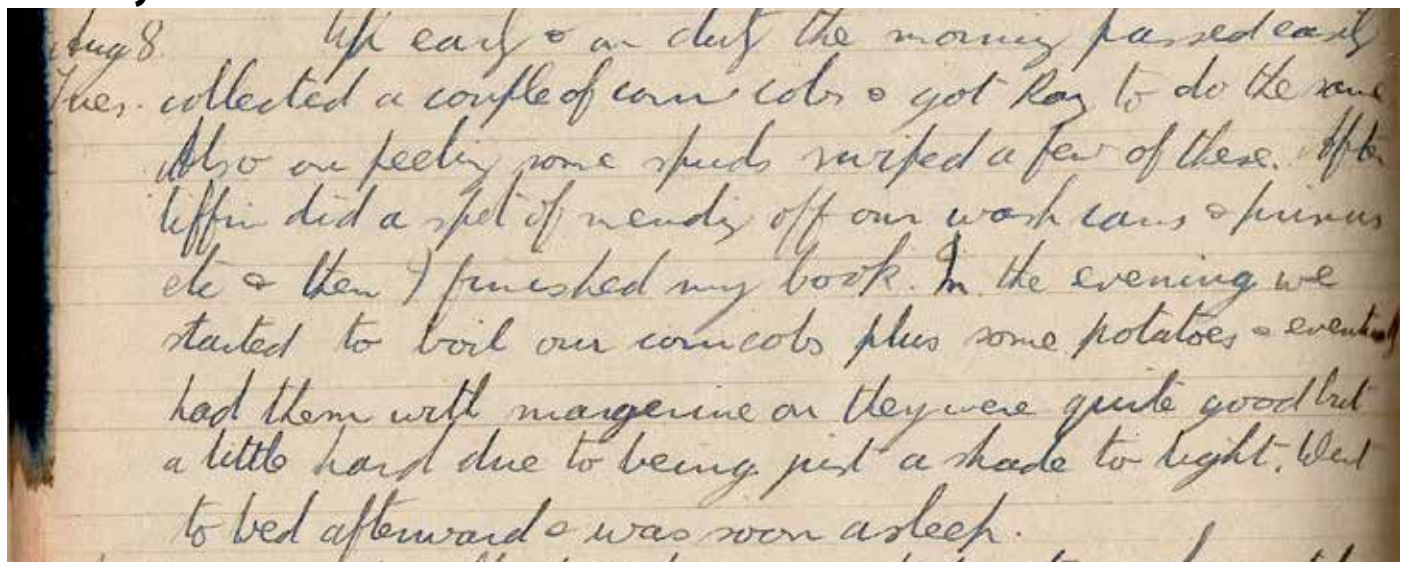 Aug 8. Up early & on duty the morning passed easily
Tues. collected a couple of corn cobs & got Ray to do the same
Also on peeling some spuds swiped a few of these. After
tiffin did a spot of mending off our wash cans & primus
etc & then I finished my book. In the evening we
started to boil our corncobs plus some potatoes & eventually
had them with margerine on they were quite good but
a little hard due to being just a shade to light. Went
to bed afterward & was soon asleep.